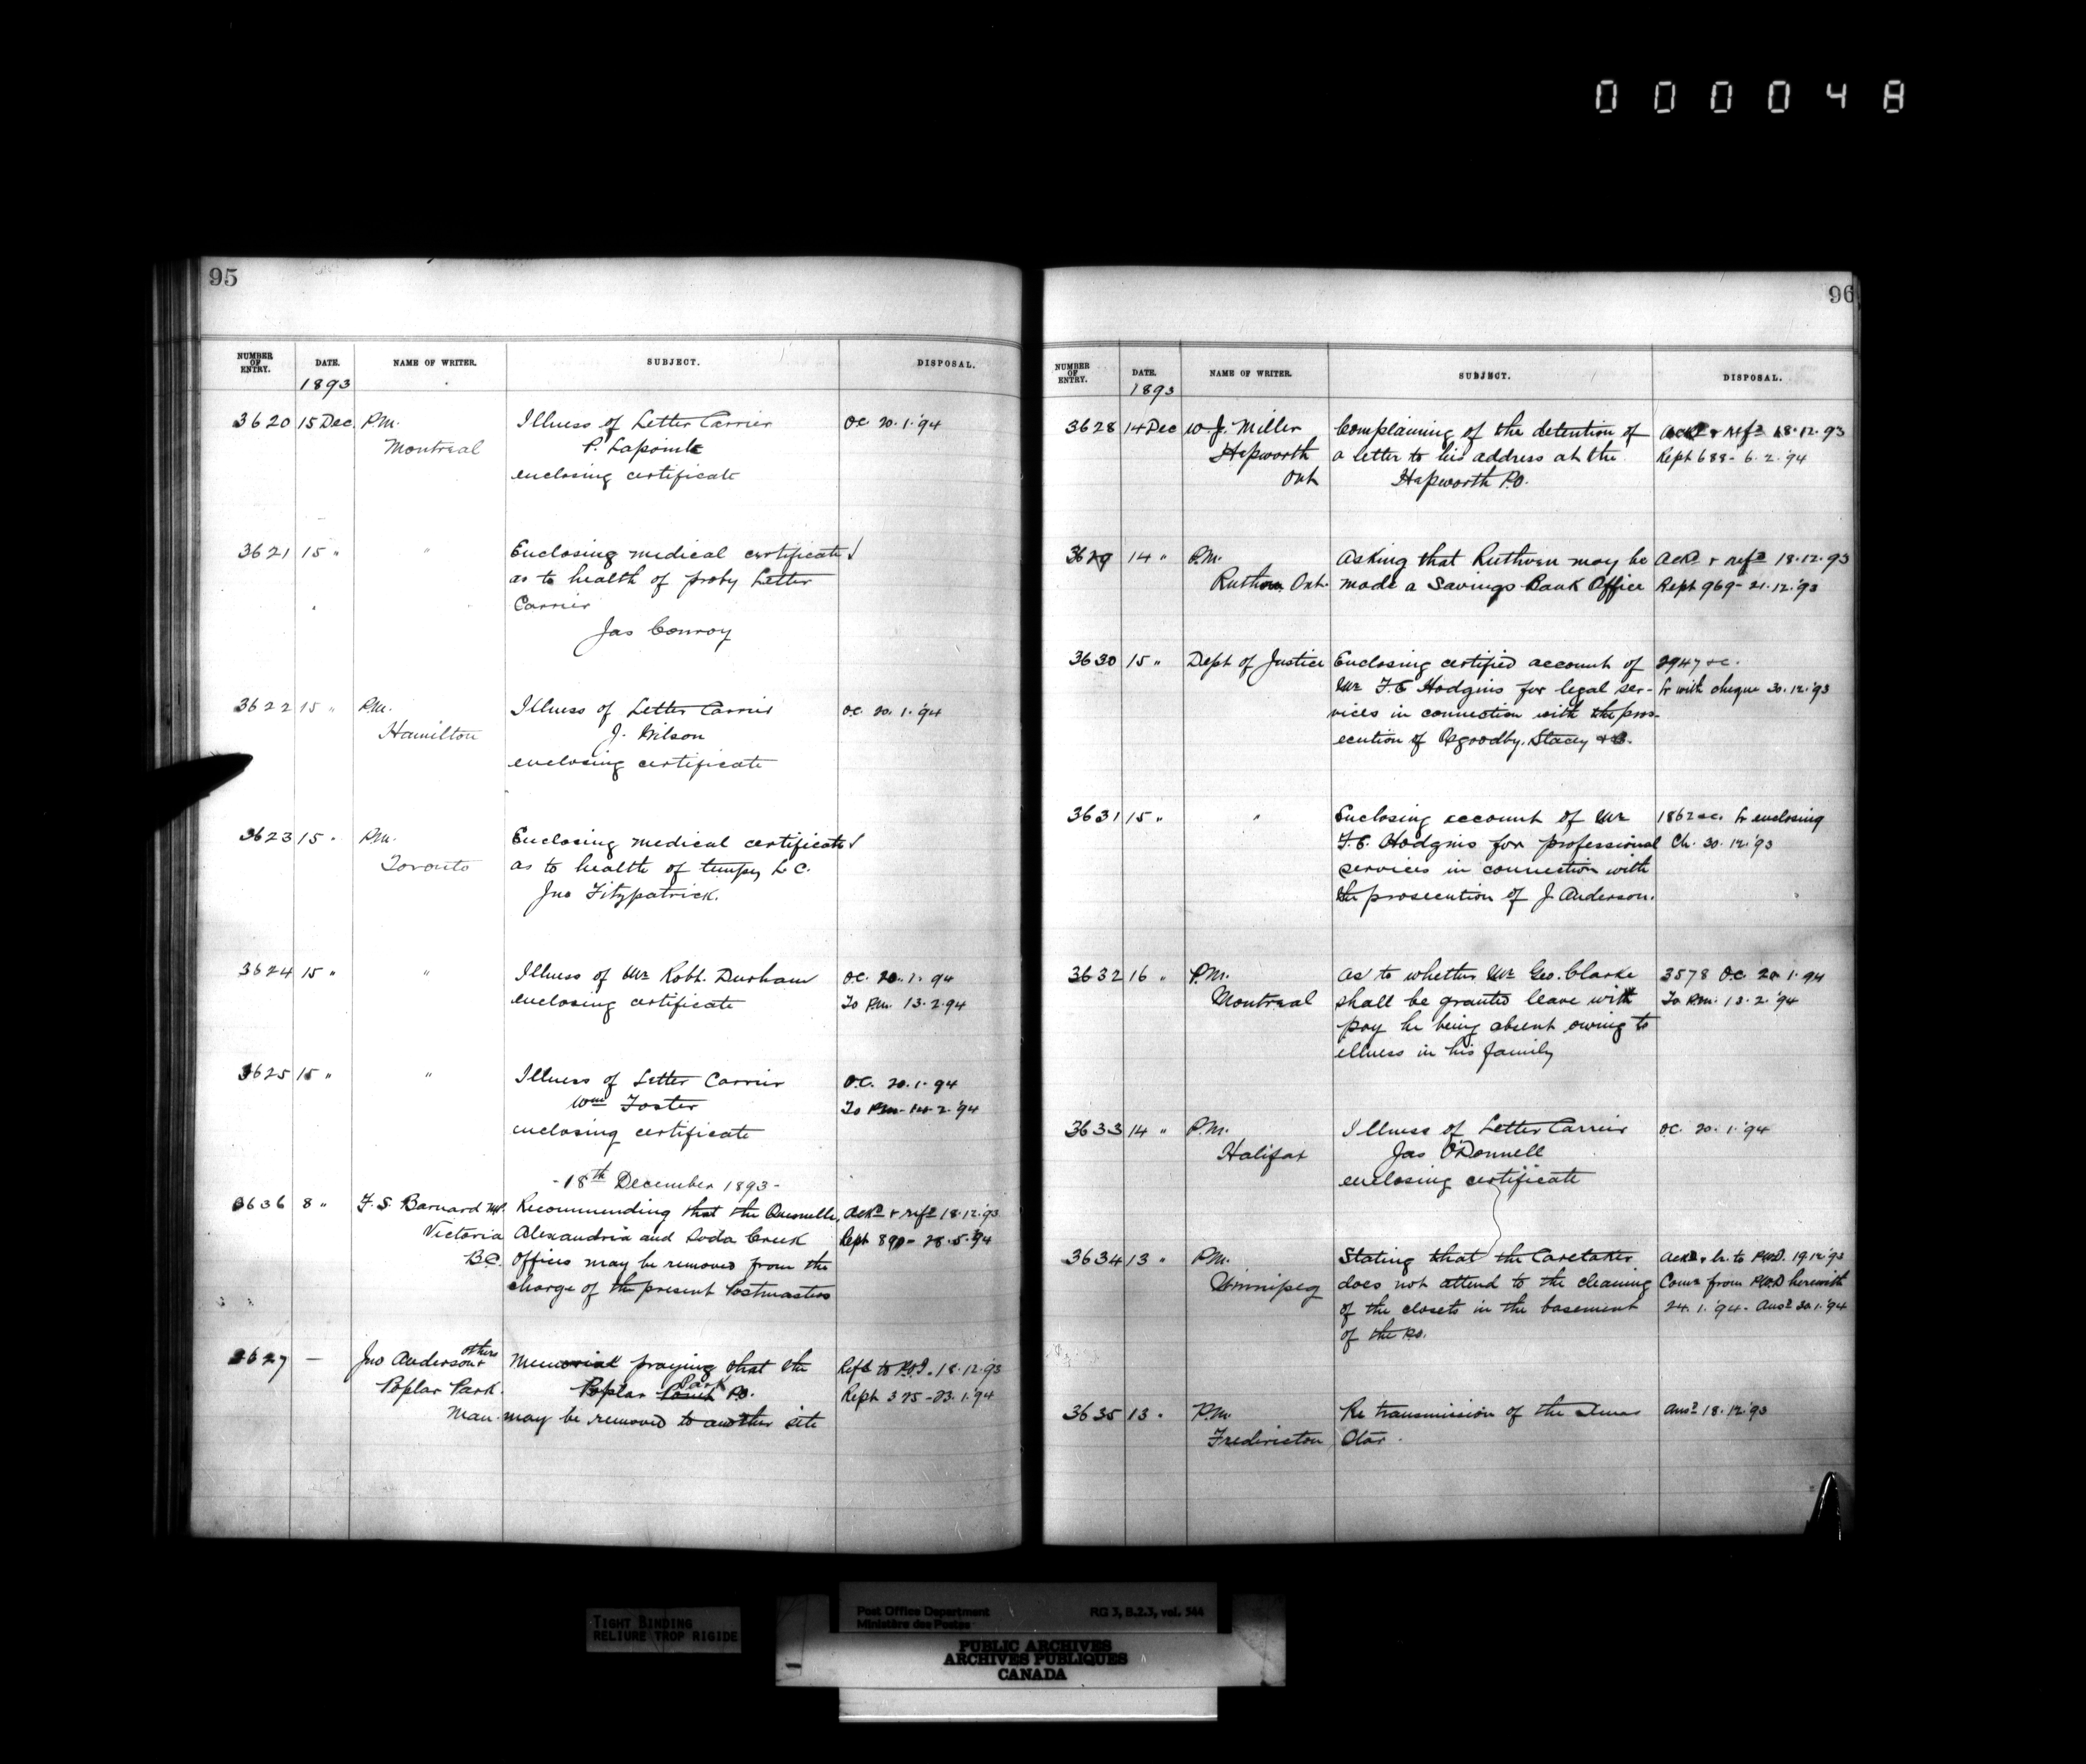 000048
95
NUMBER OF ENTRY. DATE. NAME OF WRITER. SUBJECT. DISPOSAL.
1893
3620 15 Dec. P.M. Illness of Letter Carrier O.C. 20.1.'94
Montreal P. Lapointe
enclosing certificate
3621 15 " " Enclosing medical certificate ✓
as to health of proby Letter
Carrier
Jas Conroy
3622 15 " P.M. Illness of Letter Carrier O.C. 20.1.'94
Hamilton J. Wilson
enclosing certificate
3623 15 " P.M. Enclosing medical certificate ✓
Toronto as to health of tempy L C.
Jno Fitzpatrick.
3624 15 " " Illness of Mr Robt. Durham O.C. 20.1.94
enclosing certificate To P.M. 13.2.94
3625 15 " " Illness of Letter Carrier O.C. 20.1.94
Wm Foster To P.M. 14.2.'94
enclosing certificate
- 18th December 1893 -
3636 8 " F. S. Barnard M.P. Recommending that the Quesnelle, Ackd & refd 18.12.'93
Victoria Alexandria and Soda Creek Rept 890 - 28.5.'94
B.C. Offices may be removed from the
charge of the present Postmasters
3627 — Jno Anderson & others Memorial praying that the Refd to P.O.I. 18.12.'93
Poplar Park. Poplar Park P.O. Rept 325 - 23.1.'94
Man. may be removed to another site
96
NUMBER OF ENTRY. DATE. NAME OF WRITER. SUBJECT. DISPOSAL.
1893
3628 14 Dec W. J. Miller Complaining of the detention of Ackd & refd 18.12.93
Hepworth a letter to his address at the Rept 688 - 6.2.'94
Ont Hepworth P.O.
3629 14 " P.M. Asking that Ruthven may be Ackd & refd 18.12.93
Ruthven Ont. made a Savings Bank Office Rept 969 - 21.12.'93
3630 15 " Dept of Justice Enclosing certified account of 2947 &c.
Mr F. E Hodgins for legal ser- Lr with cheque 30.12.'93
vices in connection with the pros-
ecution of Osgoodby, Stacey & Co.
3631 15 " " Enclosing account of Mr 1862 &c. Lr enclosing
F. E. Hodgins for professional Ch. 30.12.'93
services in connection with
the prosecution of J. Anderson.
3632 16 " P.M. As to whether Mr Geo. Clarke 3578 O.C. 20.1.94
Montreal shall be granted leave with To P.M. 13.2.'94
pay he being absent owing to
illness in his family
3633 14 " P.M. Illness of Letter Carrier O.C. 20.1.'94
Halifax Jas O'Donnell
enclosing certificate
3634 13 " P.M. Stating that the Caretaker Ackd & lr. to P.W.D. 19.12.'93
Winnipeg does not attend to the cleaning Comn from P.W.D herewith
of the closets in the basement 24.1.'94. Ansd 30.1.'94
of the P.O.
3635 13 " P.M. Re transmission of the Xmas Ansd 18.12.'93
Fredericton Star.
TIGHT BINDING
RELIURE TROP RIGIDE
Post Office Department RG 3, B.2.3, vol. 544
Ministère des Postes
PUBLIC ARCHIVES
ARCHIVES PUBLIQUES
CANADA